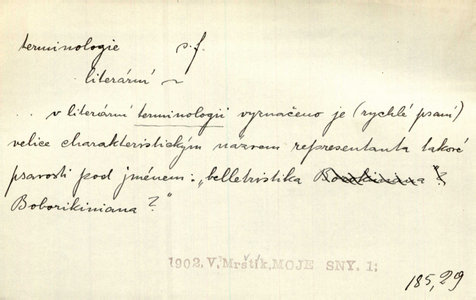 terminologie s. f.
literární ~
.. v literární terminologii vyznačeno je (rychlé psaní)
velice charakteristickým názvem representanta takové
psavosti pod jménem: „belletristika
Boborikiniana ?"
1902. V. Mrštík, MOJE SNY. 1:
185,29